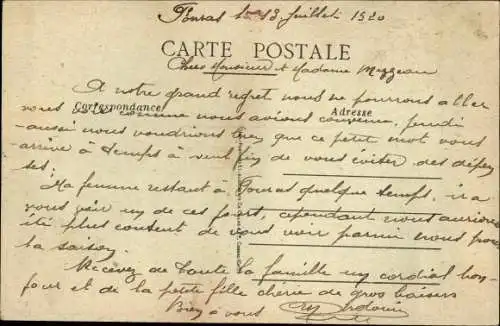 Fouras le 13 Juillet 1920
CARTE POSTALE
Chers Monsieur et Madame
A notre grand regret nous ne pourrons aller
Correspondance
Adresse
vous voir comme nous avions convenu, jeudi
aussi nous voudrions bien que ce petit mot vous
arrive à temps à seul fin de vous éviter des dépen
ses.
Ma femme restant à Fouras quelque temps, ira
vous voir un de ces jours, cependant nous aurions
été plus content de vous voir parmi nous pour
la saison.
Recevez de toute la famille un cordial bon-
jour et de la petite fille chérie de gros baisers
Bien à vous